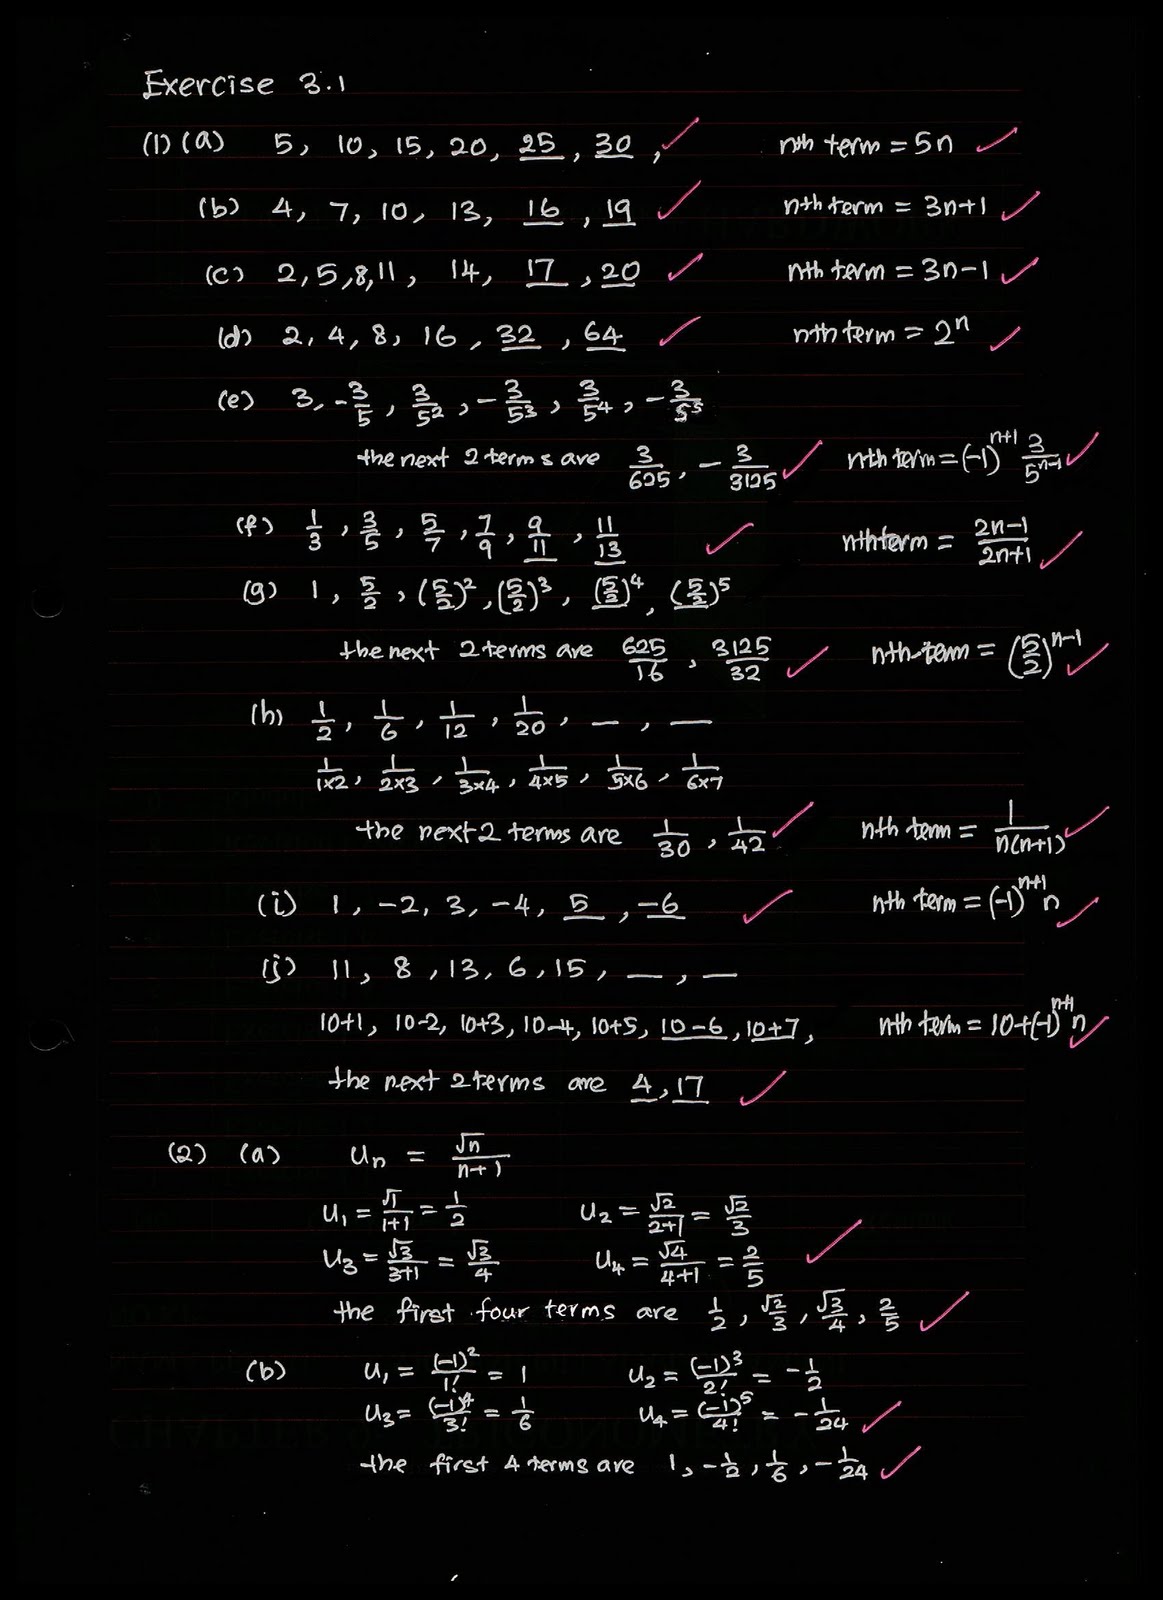 Exercise 3.1
(1) (a) 5, 10, 15, 20, 25, 30, nth term = 5n
(b) 4, 7, 10, 13, 16, 19 nth term = 3n+1
(c) 2, 5, 8, 11, 14, 17, 20 nth term = 3n-1
(d) 2, 4, 8, 16, 32, 64 nth term = 2^n
(e) 3, -3/5, 3/5^2, -3/5^3, 3/5^4, -3/5^5
the next 2 terms are 3/625, -3/3125 nth term = (-1)^(n+1) 3/5^(n-1)
(f) 1/3, 3/5, 5/7, 7/9, 9/11, 11/13 nth term = (2n-1)/(2n+1)
(g) 1, 5/2, (5/2)^2, (5/2)^3, (5/2)^4, (5/2)^5
the next 2 terms are 625/16, 3125/32 nth term = (5/2)^(n-1)
(h) 1/2, 1/6, 1/12, 1/20, __, __
1/(1×2), 1/(2×3), 1/(3×4), 1/(4×5), 1/(5×6), 1/(6×7)
the next 2 terms are 1/30, 1/42 nth term = 1/(n(n+1))
(i) 1, -2, 3, -4, 5, -6 nth term = (-1)^(n+1) n
(j) 11, 8, 13, 6, 15, __, __
10+1, 10-2, 10+3, 10-4, 10+5, 10-6, 10+7, nth term = 10+(-1)^(n+1) n
the next 2 terms are 4, 17
(2) (a) u_n = √n/(n+1)
u_1 = √1/(1+1) = 1/2 u_2 = √2/(2+1) = √2/3
u_3 = √3/(3+1) = √3/4 u_4 = √4/(4+1) = 2/5
the first four terms are 1/2, √2/3, √3/4, 2/5
(b) u_1 = (-1)^2/1! = 1 u_2 = (-1)^3/2! = -1/2
u_3 = (-1)^4/3! = 1/6 u_4 = (-1)^5/4! = -1/24
the first 4 terms are 1, -1/2, 1/6, -1/24